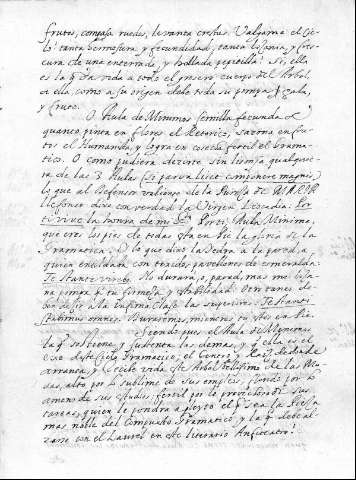 frutos, compassa ruedas, levanta crestas. Valgame el Cie-
lo! tanta hermosura, y fecundidad, tanta lozania, y fres-
cura de una enterrada, y hollada pepitilla! Si, ella
es la q̃ da vida a todo el grosero cuerpo del Arbol,
a ella, como a su origen debe toda su pompa, gala,
y fruto.
O Aula de Minimos semilla fecunda de
quanto pinta en flores el Retorico, sazona en fru-
tos el Humanista, y logra en cosecha fertil el Grama-
tico. O como pudiera dezirte sin lisonja qualquie-
ra de las Aulas (si parva licet componere magnis)
lo que al Defensor valiente de la Pureza de MARIA
Ildefonso dixo con verdad la Virgen Leocadia: Por
ti vive la honra de mi Por ti, Aula Minima,
que eres los pies de todas, esta en pie la gloria de la
Gramatica. O lo que dixo la Yedra a la pared, a
quien entoldava con texidos pavellones de esmeralda:
Te stante virebo. No durara, o pared, mas me loza-
na pompa q̃ tu firmeza, y estabilidad. Otro tanto de-
ben dezir a la Infima Clase las superiores: Te stanti
stabimus omnes. Duraremos, mientras tu estes en pie.
Siendo pues el Aula de Mynimos
la q̃ sostiene, y sustenta las demas, y q̃ ella es el
de este Gramatico, el Centro, y Raiz de donde
arranca, y recibe vida este Arbol bellissimo de las Mu-
sas, alto por lo sublime de sus empleos, florido por lo
ameno de sus estudios, fertil por lo provechoso de sus
tareas, quien le pondra a pleyto el q̃ sea la Pieza
mas noble del Compuesto Gramatico, y la q̃ debe al-
zarse con el Laurel en este literario Anfiteatro!